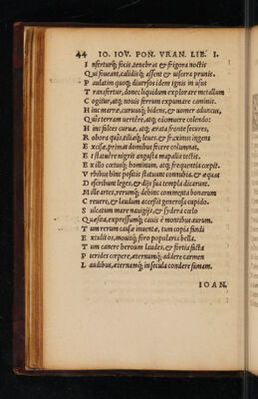 44 IO. IOV. PON. VRAN. LIB. I.
I nserturq; focis, tenebras & frigora noctis
Q ui foueant, calidiq; assent & uiscera prunis.
P aulatim quoq; diuersos idem ignis in usus
T ransfertur, donec liquidum explorare metallum
C ogitur, atq; nouis ferrum expumare caminis.
H inc marræ, curuusq; bidens, & uomer aduncus,
Q uis terram uertêre, atq; euomuere colendo:
H inc falces curuæ, atq; ærata fronte secures,
R obora queis, tiliæq; leues, & fraxinus ingens
E xcisæ, primas domibus fecere columnas,
E t stauere nigris angusta mapalia tectis.
E x illo cœtusq; hominum, atq; frequentia cœpit.
V rbibus hinc positis statuunt connubia, & æquas
D escribunt leges, & dijs sua templa dicarunt.
H isse artes, rerumq; debinc commenta bonarum
C reuere, & laudum accessit generosa cupido.
S ulcatum mare nauigijs, & sydera cœlo
Q uæsita, expressumq; cauis è montibus aurum.
T um rerum causæ inuentæ, tum copia fandi
E xtulit os, mouitq; foro popularia bella.
T um canere heroum laudes, & fortia facta
P ierides cœpere, æternumq; addere carmen
L audibus, æternamq; in secula condere famam.
IOAN.